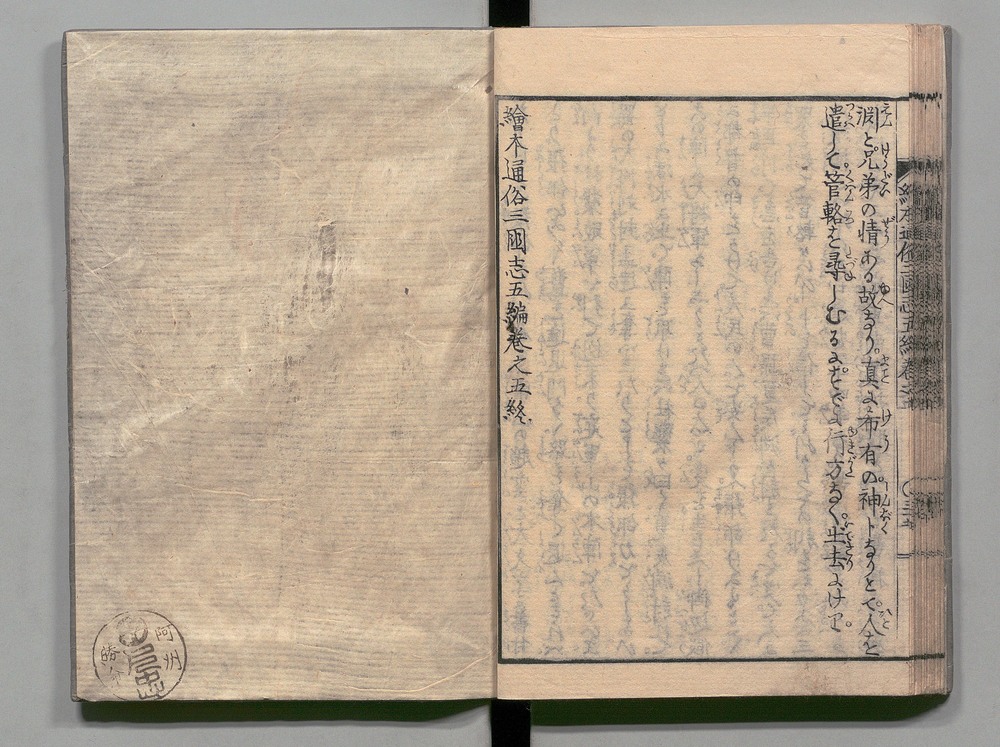 淵と兄弟の情ある故なり。真に布有の神卜なりとて。人を
遣して。管輅を尋しむるに。すでに行方なく。出去にけり。
繪本通俗三國志五編巻之五終
繪本通俗三國志五編巻之五
阿州